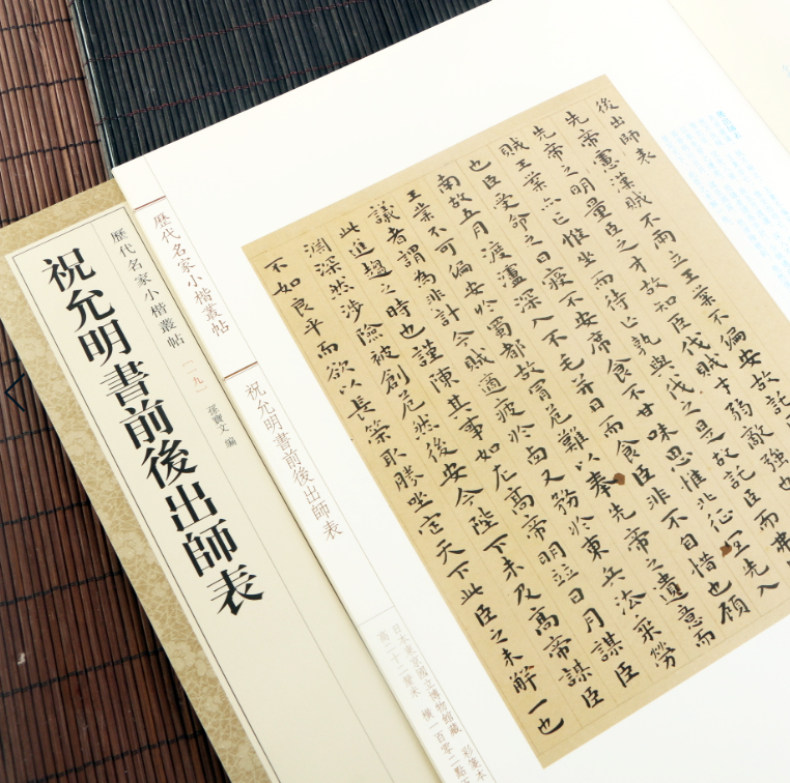 後出師表
先帝慮漢賊不兩立王業不偏安故託
先帝之明量臣之才故知臣伐賊才弱敵強也
賊王業亦亡惟坐而待亡孰與伐之是故託臣而弗
也臣受命之日寢不安席食不甘味思惟北征宜先入
南故五月渡瀘深入不毛并日而食臣非不自惜也顧
王業不可偏安於蜀都故冒危難以奉先帝之遺意而
議者謂為非計今賊適疲於西又務於東兵法乘勞
此進趨之時也謹陳其事如左高帝明並日月謀臣
淵深然涉險被創危然後安今陛下未及高帝謀臣
不如良平而欲以長策取勝坐定天下此臣之未解一也
歷代名家小楷叢帖
祝允明書前後出師表
日本東京國立博物館藏 彩箋本
高二十二釐米 橫一百零二點
歷代名家小楷叢帖〔一九〕 孫寶文 編
祝允明書前後出師表